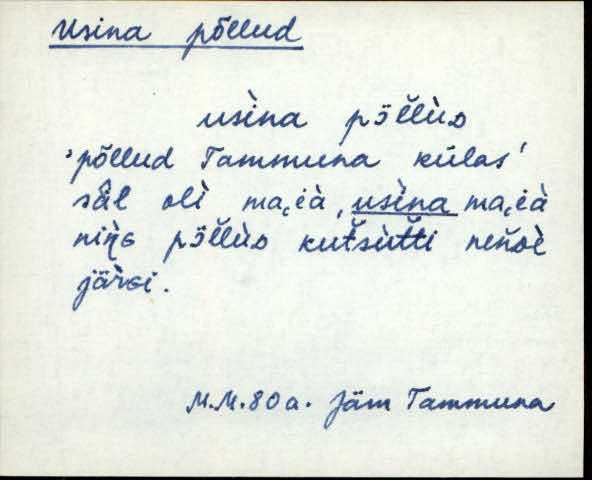 Usina põllud
usìna pɔ̈l̆l̆ùᴅ
'põllud Tammuna külas'
sâ̈l olì ma‚ià, usìna ma‚ià
niŋ̀ɢ pɔ̈l̆l̆ùᴅ kut̆sùt̆ti nen̆ᴅè
jär̀ɢi.
M.M. 80 a. Jäm Tammuna